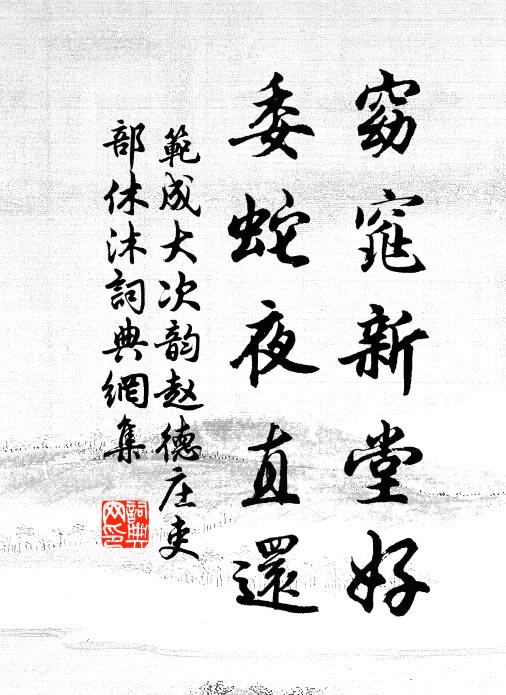 窈窕新堂好
委蛇夜直還
範成大次韵趙德庄吏
部休沐詞典網集
詞典
网印